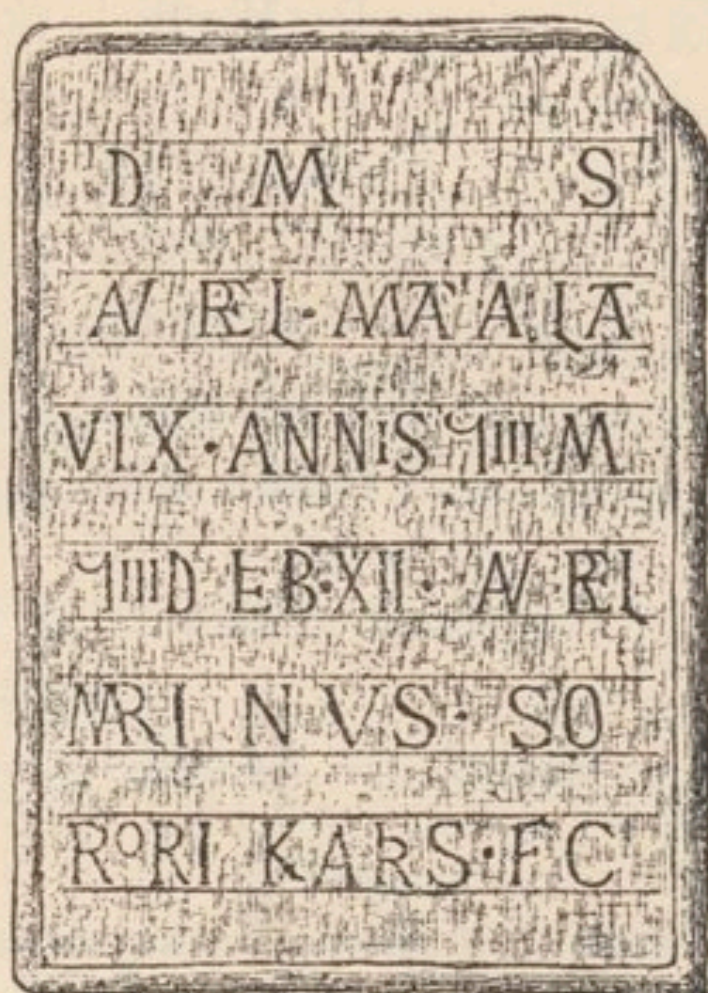 D M S
AV REL · MA'A LA
VIX · ANNIS ϚIII M
ϚIIII D EB · XII · AV REL
MARINVS · SO
RORI KARS · F C